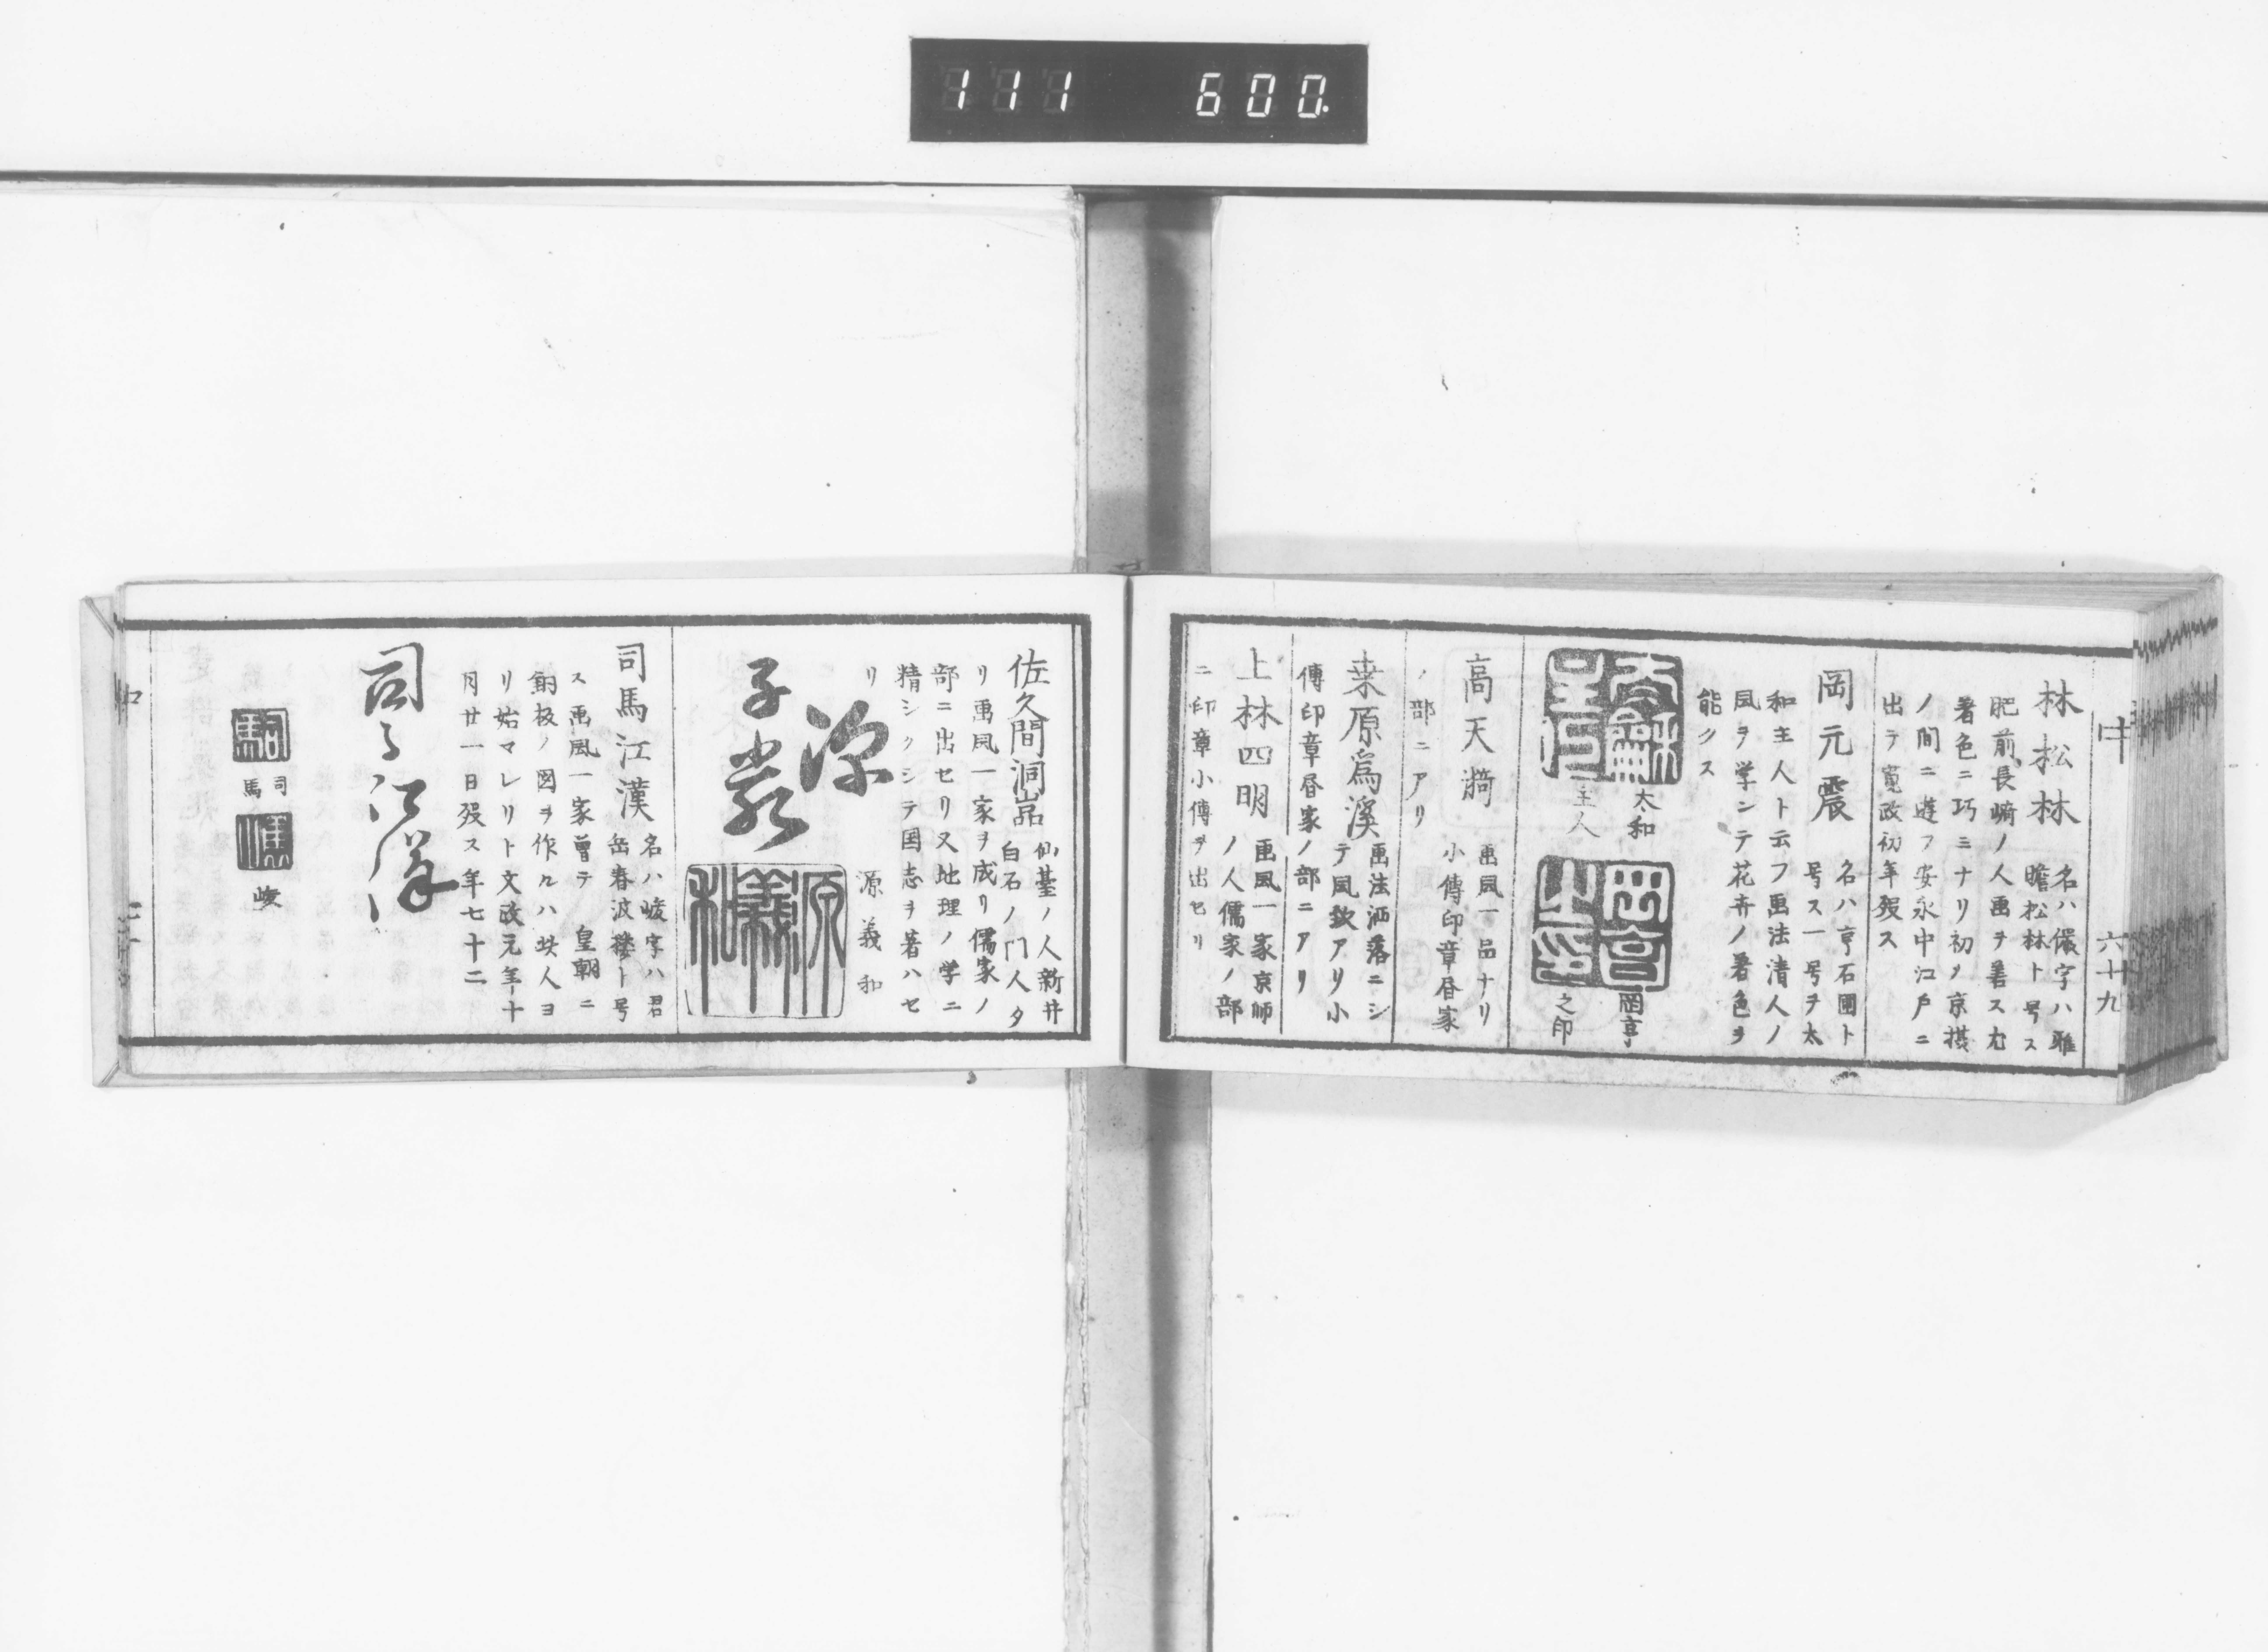 111 600.
中 六十九
林松林 名ハ儼字ハ雅
瞻松林ト号ス
肥前長崎ノ人画ヲ善ス尤
着色ニ巧ミナリ初メ京摂
ノ間ニ遊フ安永中江戸ニ
出テ寛政初年歿ス
岡元震 名ハ亨石圃ト
号ス一号ヲ太
和主人ト云フ画法清人ノ
風ヲ学ンテ花卉ノ着色ヲ
能クス
太和
主人
岡亨
之印
高天漪 画風一品ナリ
小傳印章書家
ノ部ニアリ
桒原為溪 画法洒落ニシ
テ風致アリ小
傳印章書家ノ部ニアリ
上林四明 画風一家京師
ノ人儒家ノ部
ニ印章小傳ヲ出セリ
佐久間洞巖 仙臺ノ人新井
白石ノ門人タ
リ画風一家ヲ成リ儒家ノ
部ニ出セリ又地理ノ学ニ
精シクシテ国志ヲ著ハセ
リ
源義和
源
子巖
司馬江漢 名ハ峻字ハ君
岳春波樓ト号
ス画風一家曽テ 皇朝ニ
銅板ノ図ヲ作ルハ此人ヨ
リ始マレリト文政元年十
月廿一日歿ス年七十二
司馬江漢
司馬
峻
中